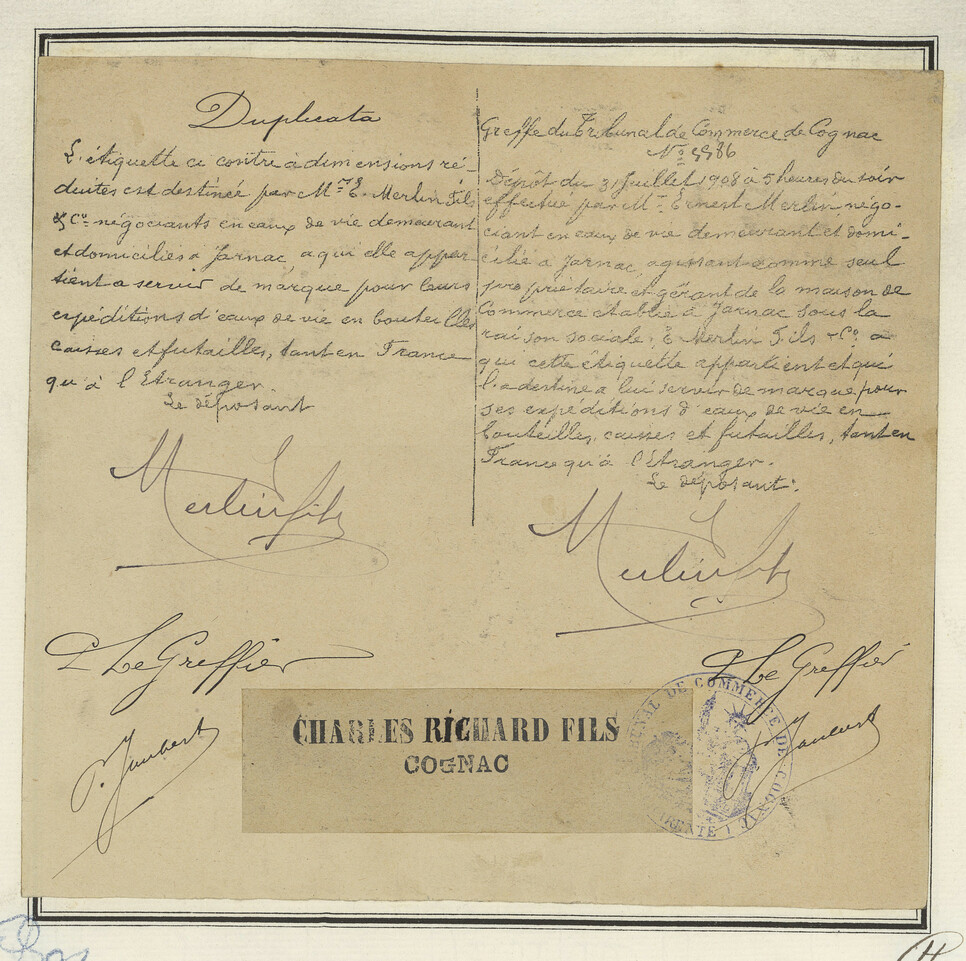 Duplicata
L'étiquette ci contre à dimensions ré-
duites est destinée par Mrs E. Merlin Fils
& Co négociants en eaux de vie demeurant
et domiciliés à Jarnac, a qui elle appar-
tient a servir de marque pour leurs
expéditions d'eaux de vie en bouteilles
caisses et futailles, tant en France
qu'à l'Etranger.
Le déposant
Merlin fils
P Le Greffier
P. Joubert
Greffe du Tribunal de Commerce de Cognac
No 5586
Dépôt du 31 Juillet 1908 a 5 heures du soir
effectué par Mr Ernest Merlin, négo-
ciant en eaux de vie demeurant et domi-
cilié à Jarnac, agissant comme seul
propriétaire et gérant de la maison de
Commerce etablie à Jarnac sous la
raison sociale: E Merlin Fils & Co a
qui cette étiquette appartient et qui
l'a destine a lui servir de marque pour
ses expéditions d'eaux de vie en
bouteilles, caisses et futailles, tant en
France qu'à l'Etranger.
Le déposant:
Merlin fils
P Le Greffier
P. Joubert
CHARLES RICHARD FILS
COGNAC
TRIBUNAL DE COMMERCE DE COGNAC